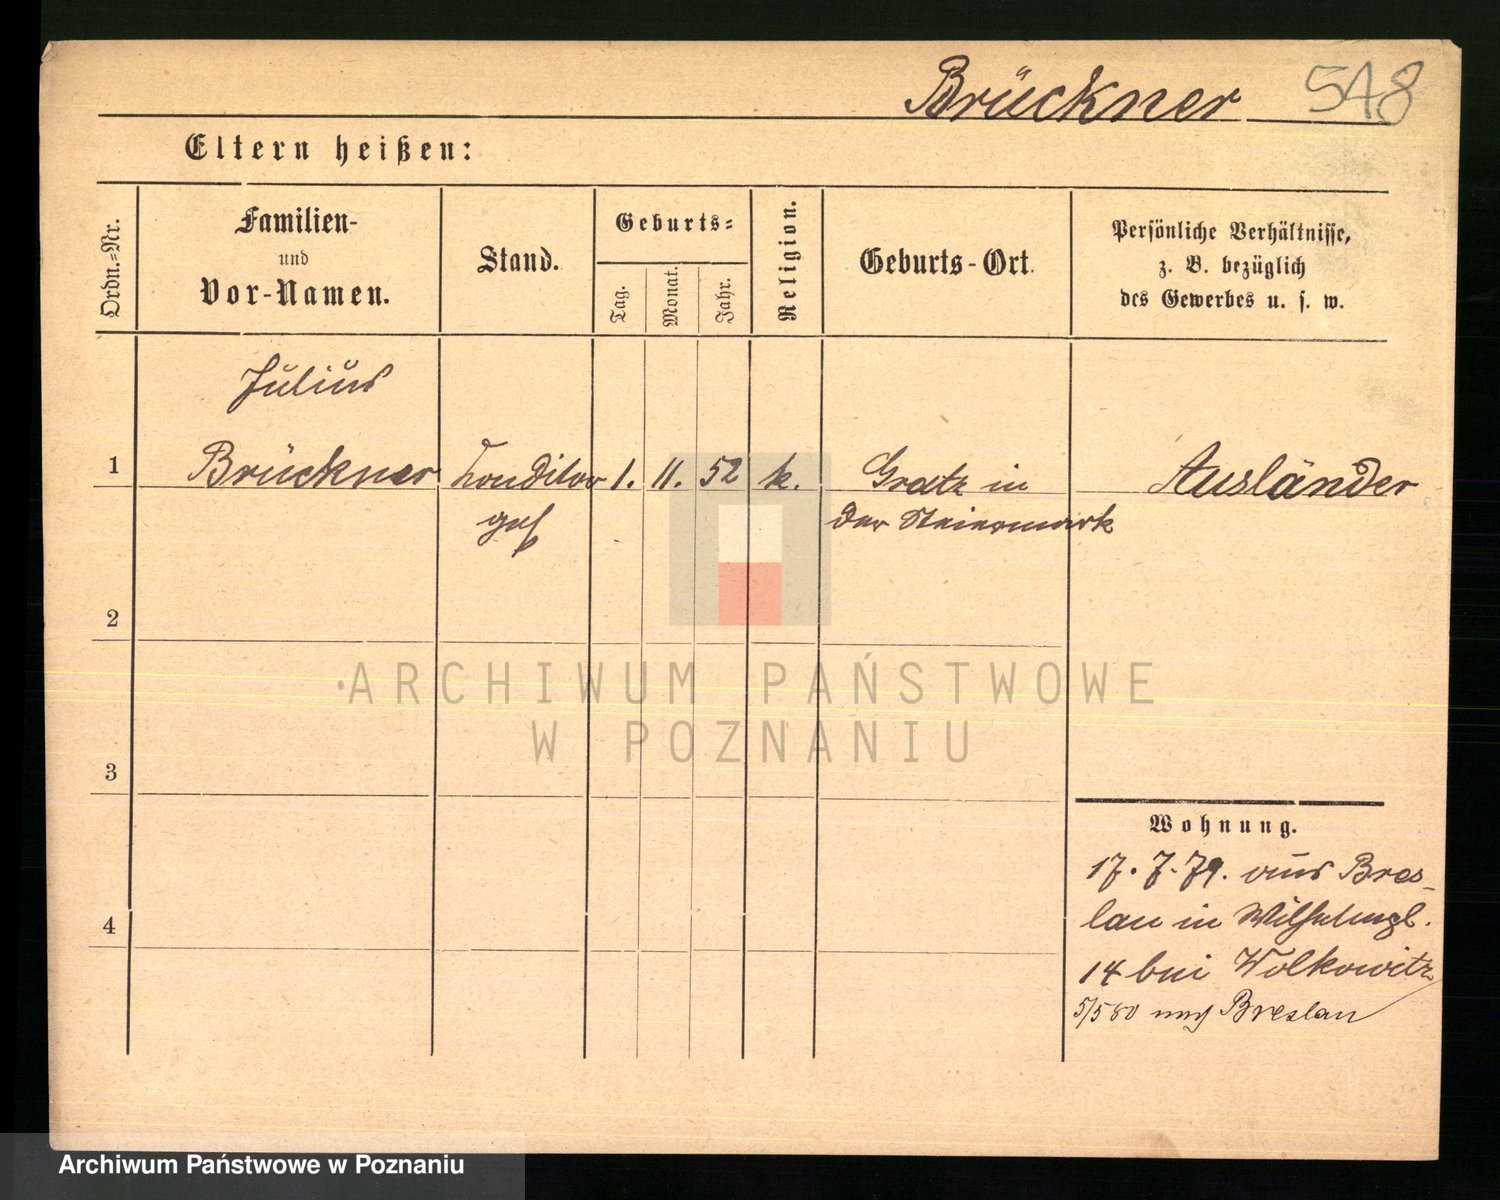 Brückner 548
Eltern heißen:
Ordn.=Nr.
Familien-
und
Vor-Namen.
Stand.
Geburts=
Tag.
Monat.
Jahr.
Religion.
Geburts-Ort.
Persönliche Verhältnisse,
z. B. bezüglich
des Gewerbes u. s. w.
Julius
1 Brückner Konditor 1. 11. 52 k. Gratz in Ausländer
geh der Steiermark
2
3
4
Wohnung.
17. 7. 79. aus Bres-
lau in Wilhelmpl.
14 bei Wolkowitz
5/5 80 nach Breslau
ARCHIWUM PAŃSTWOWE
W POZNANIU
Archiwum Państwowe w Poznaniu